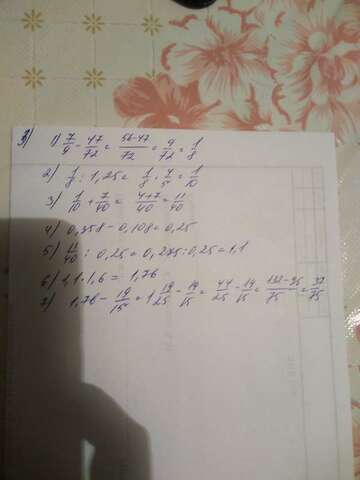 3) 1) 7/9 - 47/72 = 56-47/72 = 9/72 = 1/8
2) 1/8 : 1,25 = 1/8 · 4/5 = 1/10
3) 1/10 + 7/40 = 4+7/40 = 11/40
4) 0,358 - 0,108 = 0,25
5) 11/40 : 0,25 = 0,275 : 0,25 = 1,1
6) 1,1 · 1,6 = 1,76
7) 1,76 - 19/15 = 1 19/25 - 19/15 = 44/25 - 19/15 = 132-95/75 = 37/75